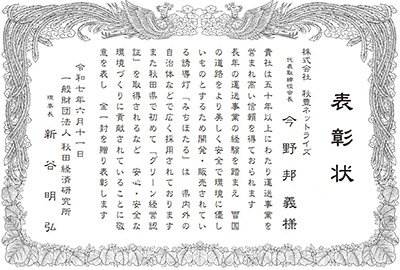 表彰状
株式会社 秋豊ネットライズ
代表取締役会長
今野邦義様
貴社は五十年以上にわたり運送事業を
営まれ高い信頼を得ておられます
長年の運送事業の経験を踏まえ 雪国
の道路をより美しく安全で環境に優し
いものとするため開発・販売されてい
る誘導灯「みちほたる」は 県内外の
自治体などで広く採用されております
また秋田県で初めて「グリーン経営認
証」を取得されるなど 安心・安全な
環境づくりに貢献されていることに敬
意を表し 金一封を贈り表彰します
令和七年六月十一日
一般財団法人 秋田経済研究所
理事長 新谷明弘